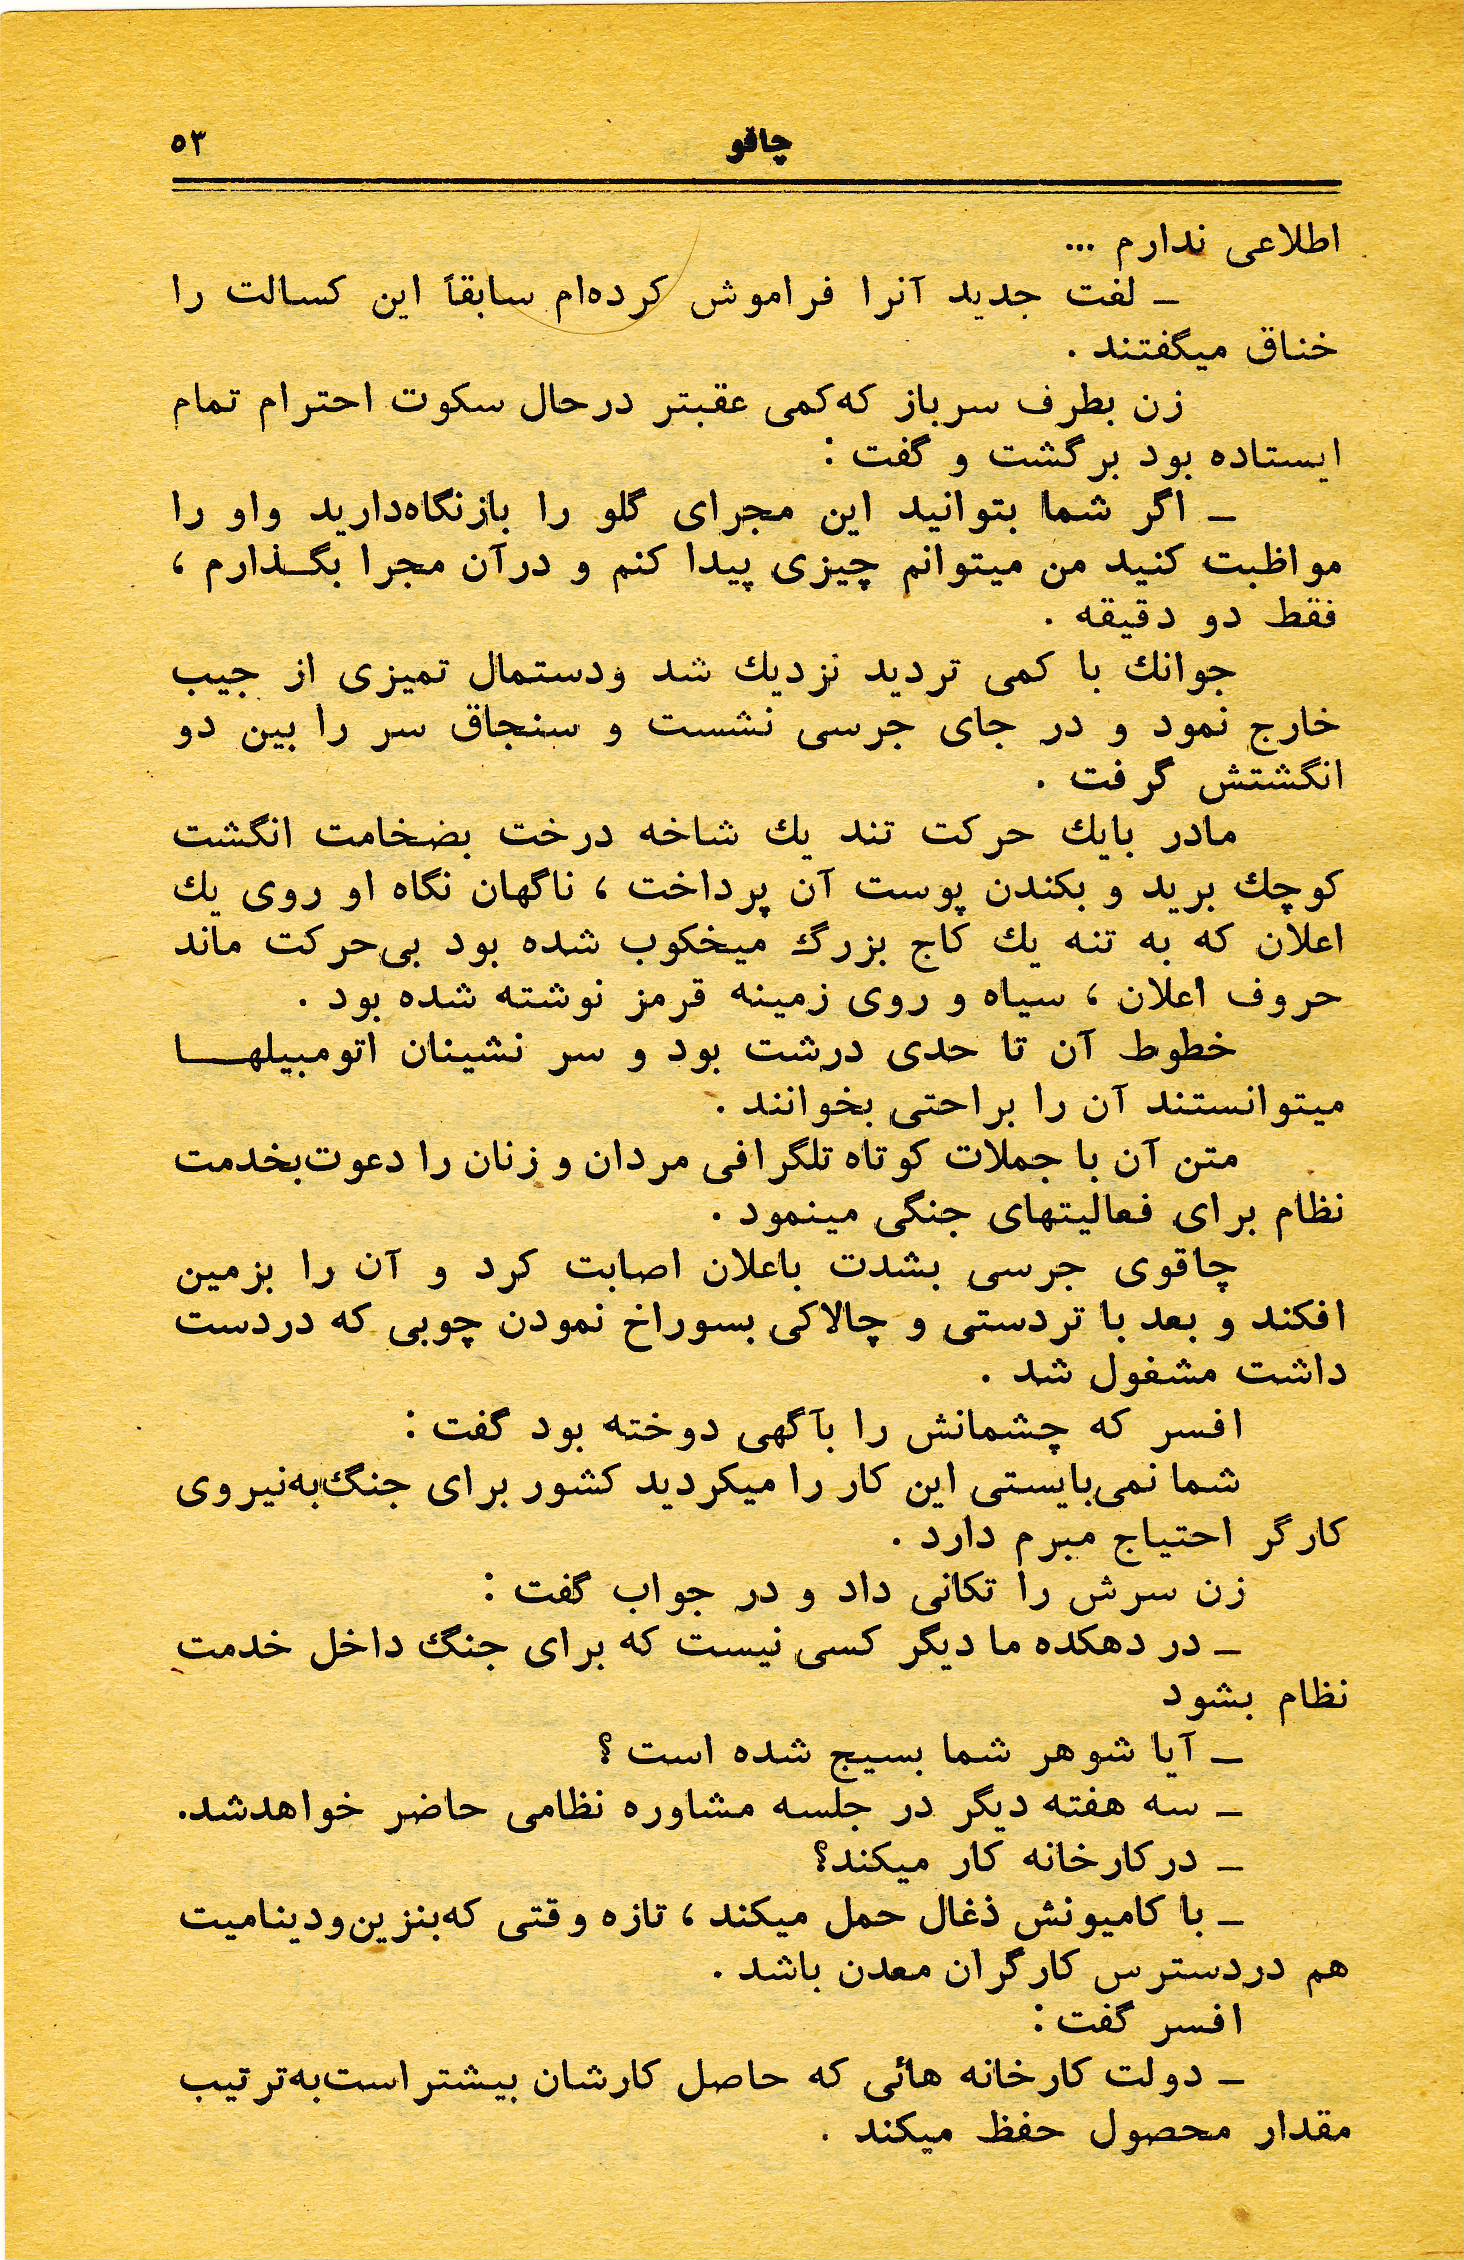 چاقو
۵۳
اطلاعی ندارم ...
ــ لغت جدید آنرا فراموش کرده‌ام سابقاً این کسالت را
خناق میگفتند .
زن بطرف سرباز که‌کمی عقبتر درحال سکوت احترام تمام
ایستاده بود برگشت و گفت :
ــ اگر شما بتوانید این مجرای گلو را بازنگاه‌دارید واو را
مواظبت کنید من میتوانم چیزی پیدا کنم و درآن مجرا بگـذارم ،
فقط دو دقیقه .
جوانك با کمی تردید نزدیك شد ودستمال تمیزی از جیب
خارج نمود و در جای جرسی نشست و سنجاق سر را بین دو
انگشتش گرفت .
مادر بایك حرکت تند یك شاخه درخت بضخامت انگشت
کوچك برید و بکندن پوست آن پرداخت ، ناگهان نگاه او روی یك
اعلان که به تنه یك کاج بزرگ میخکوب شده بود بی‌حرکت ماند
حروف اعلان ، سیاه و روی زمینه قرمز نوشته شده بود .
خطوط آن تا حدی درشت بود و سر نشینان اتومبیلهـــا
میتوانستند آن را براحتی بخوانند .
متن آن با جملات کوتاه تلگرافی مردان و زنان را دعوت‌بخدمت
نظام برای فعالیتهای جنگی مینمود .
چاقوی جرسی بشدت باعلان اصابت کرد و آن را بزمین
افکند و بعد با تردستی و چالاکی بسوراخ نمودن چوبی که دردست
داشت مشغول شد .
افسر که چشمانش را بآگهی دوخته بود گفت :
شما نمی‌بایستی این کار را میکردید کشور برای جنگ‌به‌نیروی
کارگر احتیاج مبرم دارد .
زن سرش را تکانی داد و در جواب گفت :
ــ در دهکده ما دیگر کسی نیست که برای جنگ داخل خدمت
نظام بشود
ــ آیا شوهر شما بسیج شده است ؟
ــ سه هفته دیگر در جلسه مشاوره نظامی حاضر خواهدشد.
ــ درکارخانه کار میکند؟
ــ با کامیونش ذغال حمل میکند ، تازه وقتی که‌بنزین‌ودینامیت
هم دردسترس کارگران معدن باشد .
افسر گفت :
ــ دولت کارخانه هائی که حاصل کارشان بیشتر است‌به‌ترتیب
مقدار محصول حفظ میکند .